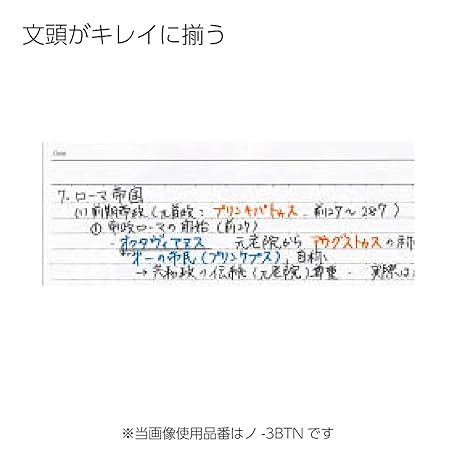 文頭がキレイに揃う
Date
7. ローマ帝国
(1) 前期帝政（元首政：プリンキパトゥス、前27〜287）
① 帝政ローマの開始（前27）
・オクタヴィアヌス 元老院から アウグストゥスの称
第一の市民（プリンケプス）, 自称、
→ 共和政の伝統（元老院）尊重 - 実際は
※当画像使用品番はノ-3BTNです